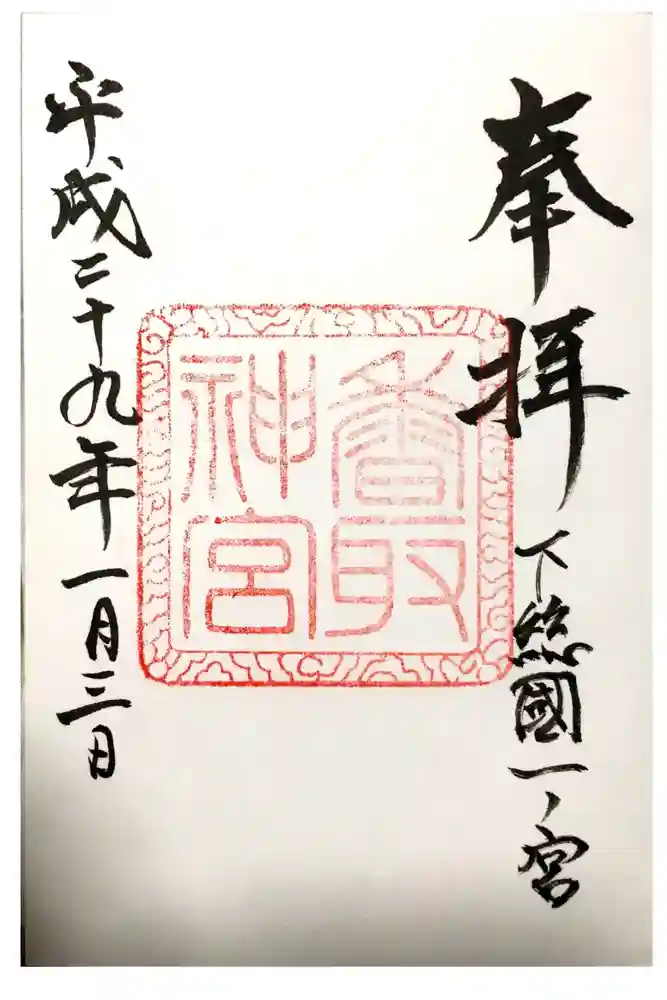 奉拝
下総國一ノ宮
香取
神宮
平成二十九年一月三日